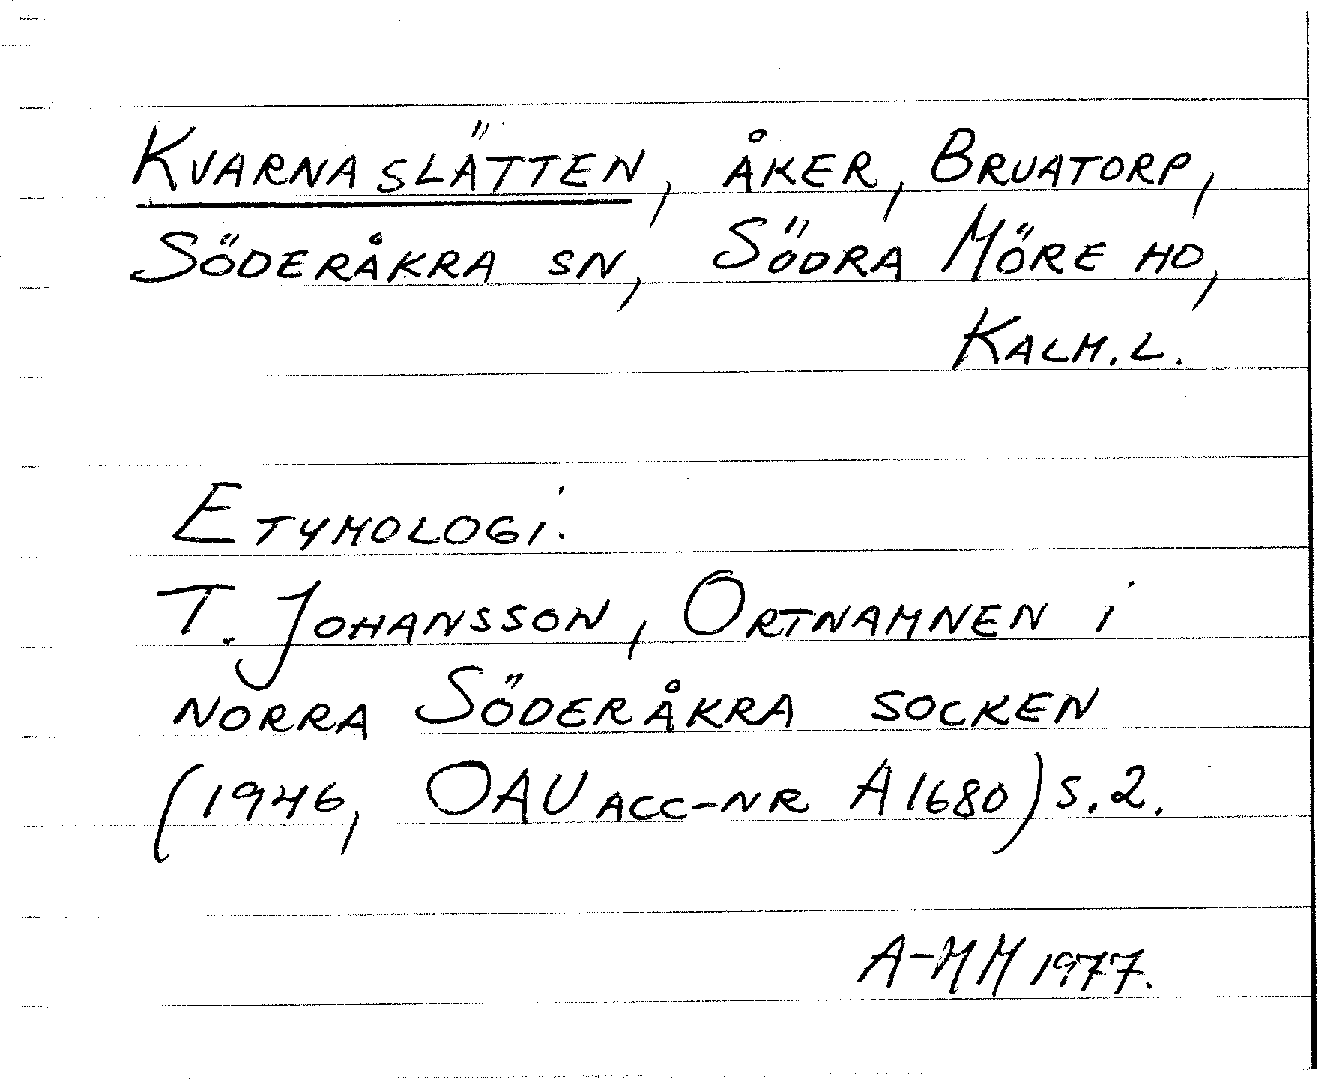 Kvarnaslätten, åker, Bruatorp,
Söderåkra sn, Södra Möre hd,
Kalm.l.
Etymologi.
T. Johansson, Ortnamnen i
norra Söderåkra socken
(1946, OAU acc-nr A1680) s.2.
A-MM 1977.